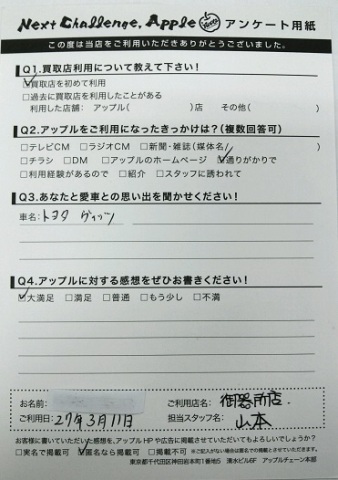 Next Challenge. Apple アンケート用紙
この度は当店をご利用いただきありがとうございました。
Q1.買取店利用について教えて下さい!
☑買取店を初めて利用
□過去に買取店を利用したことがある
利用した店舗: アップル( )店 その他( )
Q2.アップルをご利用になったきっかけは?(複数回答可)
□テレビCM □ラジオCM □新聞・雑誌(媒体名 )
□チラシ □DM □アップルのホームページ ☑通りがかりで
□利用経験があるので □紹介 □スタッフに誘われて
Q3.あなたと愛車との思い出を聞かせください!
車名:トヨタ ヴィッツ
Q4.アップルに対する感想をぜひお書きください!
☑大満足 □満足 □普通 □もう少し □不満
お名前: ご利用店名: 御器所店
ご利用日:27年3月11日 担当スタッフ名: 山本
お客様に書いていただいた感想を、アップルHPや広告に掲載させていただいてもよろしいでしょうか?
□実名で掲載可 ☑匿名なら掲載可 □掲載不可 ※ご記入がない場合は匿名での掲載とさせていただきます。
東京都千代田区神田岩本町1番地5 清水ビル6F アップルチェーン本部